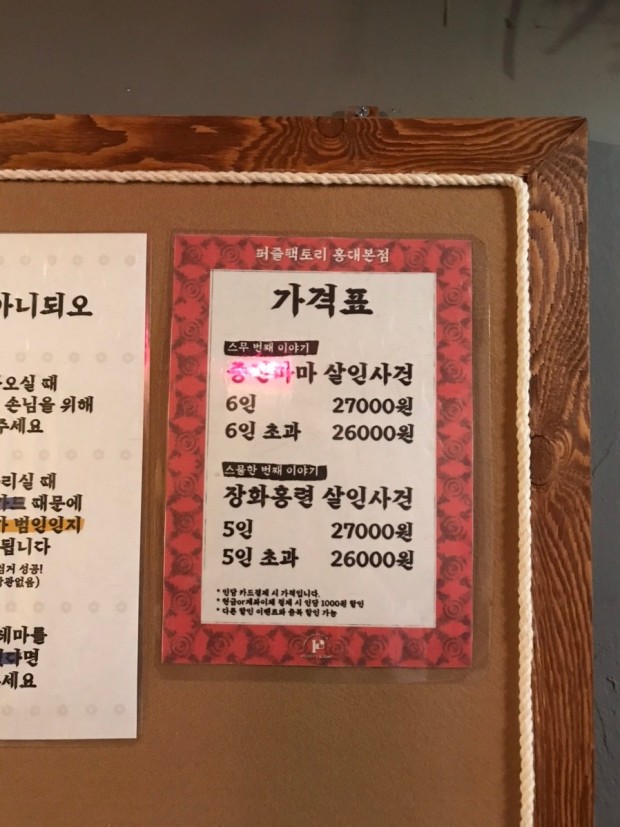 아니되오
오실 때
손님을 위해
주세요
리실 때
카드 때문에
가 범인인지
됩니다
검거 성공!
상관없음)
테마를
면
세요
퍼즐팩토리 홍대본점
가격표
스무 번째 이야기
중전마마 살인사건
6인 27000원
6인 초과 26000원
스물한 번째 이야기
장화홍련 살인사건
5인 27000원
5인 초과 26000원
* 인당 카드결제 시 가격입니다.
* 현금or계좌이체 결제 시 인당 1000원 할인
* 다른 할인 이벤트와 중복 할인 가능